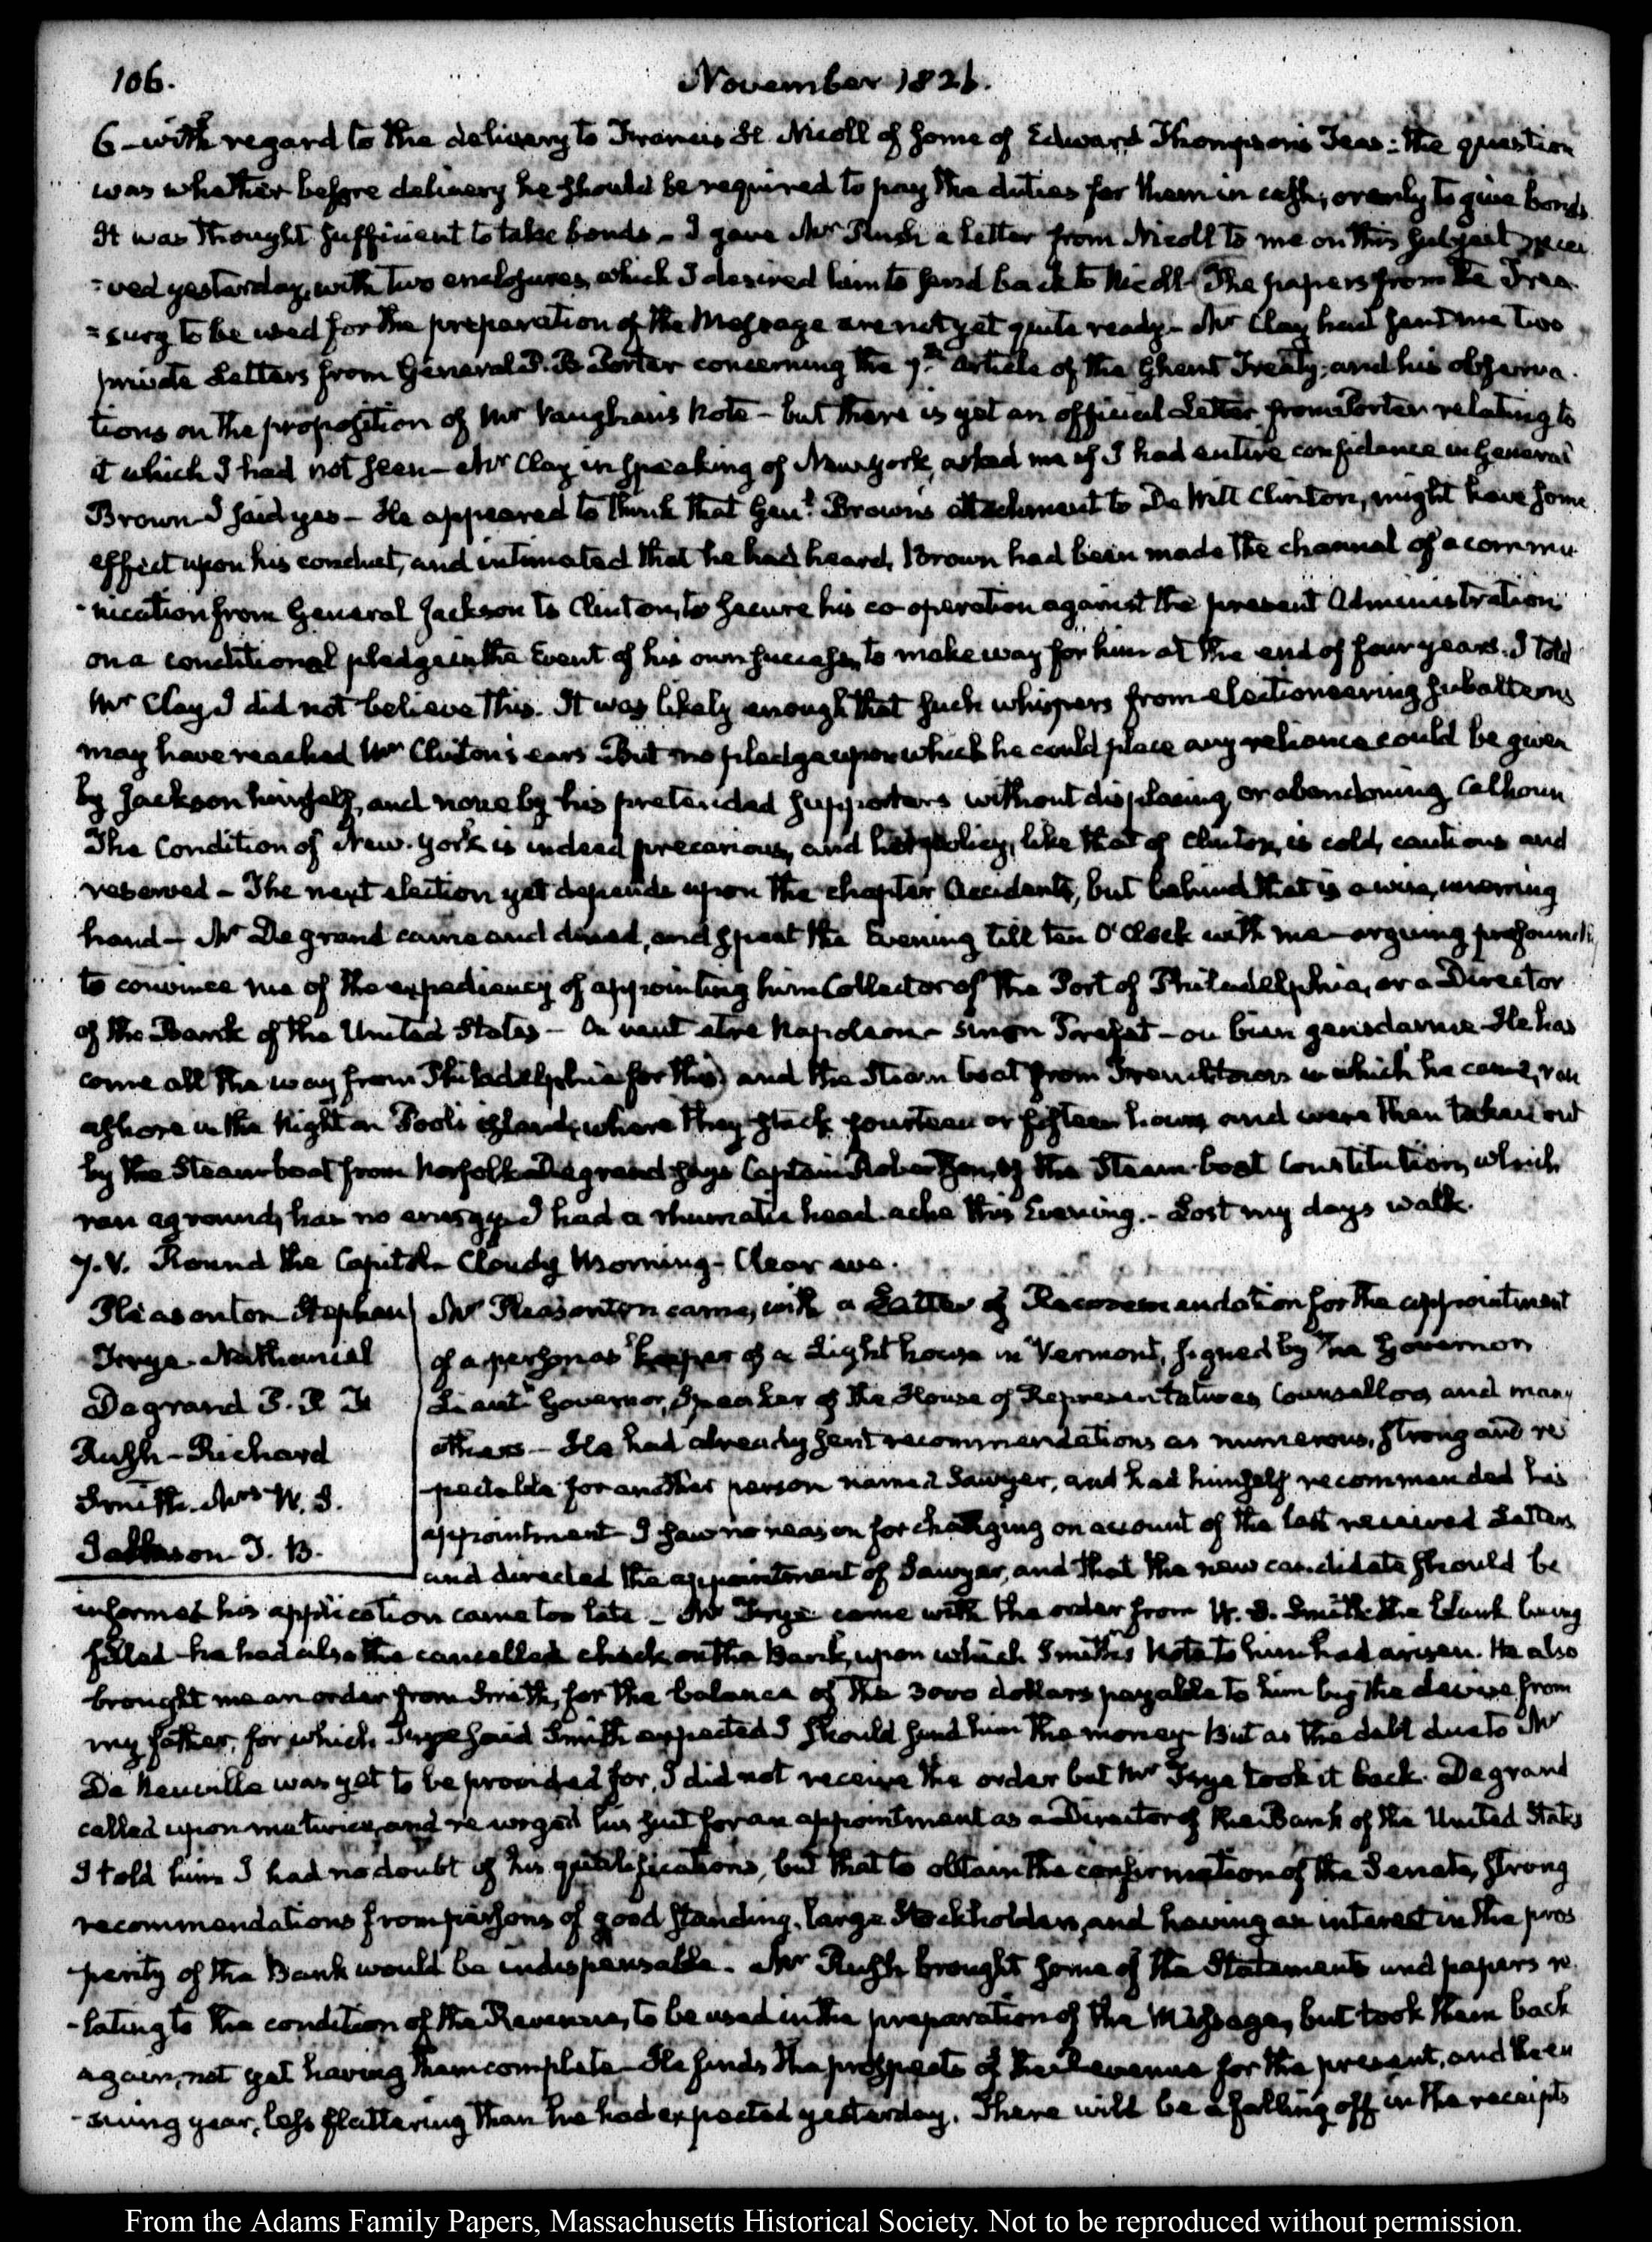 106.
November 1826.
6 - with regard to the delivery to Francis H. Nicoll of some of Edward Thompson's Teas: the question
was whether before delivery he should be required to pay the duties for them in cash, or only to give bonds.
It was thought sufficient to take bonds - I gave Mr Rush a Letter from Nicoll to me on this subject recei
=ved yesterday, with two enclosures, which I desired him to send back to Nicoll - The papers from the Trea
=sury to be used for the preparation of the Message are not yet quite ready - Mr Clay had sent me two
private Letters from General P. B. Porter concerning the 7th Article of the Ghent Treaty; and his observa-
tions on the proposition of Mr Vaughan's Note - but there is yet an official Letter from Porter relating to
it which I had not seen - Mr Clay in speaking of New York, asked me if I had entire confidence in General
Brown - I said yes - He appeared to think that Genl Brown's attachment to De Witt Clinton, might have some
effect upon his conduct, and intimated that he had heard, Brown had been made the channel of a commu
-nication from General Jackson to Clinton, to secure his co-operation against the present Administration
on a conditional pledge in the Event of his own success, to make way for him at the end of four years. I told
Mr Clay I did not believe this. It was likely enough that such whispers from electioneering subalterns
may have reached Mr Clinton's ears - But no pledge upon which he could place any reliance could be given
by Jackson himself, and none by his pretended supporters without displacing, or abandoning Calhoun
The Condition of New-York is indeed precarious, and her policy, like that of Clinton, is cold, cautious and
reserved - The next election yet depends upon the chapter Accidents, but behind that is a wise, unerring
hand - Mr Degrand came and dined, and spent the Evening till ten O'Clock with me - arguing profoundly
to convince me of the expediency of appointing him Collector of the Port of Philadelphia, or a Director
of the Bank of the United States - On veut etre Napoleon - sinon Prefet - ou bien gensdarme - He has
come all the way from Philadelphia for this; and the Steam boat from Frenchtown in which he came, ran
ashore in the Night on Pool's island, where they stuck fourteen or fifteen hours and were then taken out
by the Steam boat from Norfolk - Degrand says Captain Robertson, of the Steam-boat Constitution, which
ran aground, has no energy - I had a rheumatic head-ache this Evening. - Lost my days walk.
7. V. Round the Capitol - Cloudy Morning - Clear eve.
Pleasonton Stephen
Frye - Nathaniel
Degrand P. P. F
Rush - Richard
Smith. Mrs W. S.
Jackson J. B.
Mr Pleasonton came, with a Letter of Recommendation for the appointment
of a person as keeper of a Light house in Vermont, signed by the Governor
Lieutt Governor, Speaker of the House of Representatives, Counsellors and many
others - He had already sent recommendations as numerous, strong and res
pectable for another person named Sawyer, and had himself recommended his
appointment - I saw no reason for changing on account of the last received Letters
and directed the appointment of Sawyer, and that the new candidate should be
informed his application came too late - Mr Frye came with the order from W. S. Smith the blank being
filled - he had also the cancelled check on the Bank, upon which Smith's Note to him had arisen. He also
brought me an order from Smith, for the balance of the 3000 dollars payable to him by the devise from
my father, for which Frye said Smith expected I should send him the money - But as the debt due to Mr
De Neuville was yet to be provided for, I did not receive the order but Mr Frye took it back. Degrand
called upon me twice, and re urged his suit for an appointment as a Director of the Bank of the United States
I told him I had no doubt of his qualifications, but that to obtain the confirmation of the Senate, strong
recommendations from persons of good standing, large Stockholders, and having an interest in the pros
perity of the Bank would be indispensable. Mr Rush brought some of the Statements and papers re
-lating to the condition of the Revenue, to be used in the preparation of the Message, but took them back
again, not yet having them complete - He finds the prospects of the Revenue for the present, and the en
-suing year, less flattering than he had expected yesterday. There will be a falling off in the receipts
From the Adams Family Papers, Massachusetts Historical Society. Not to be reproduced without permission.